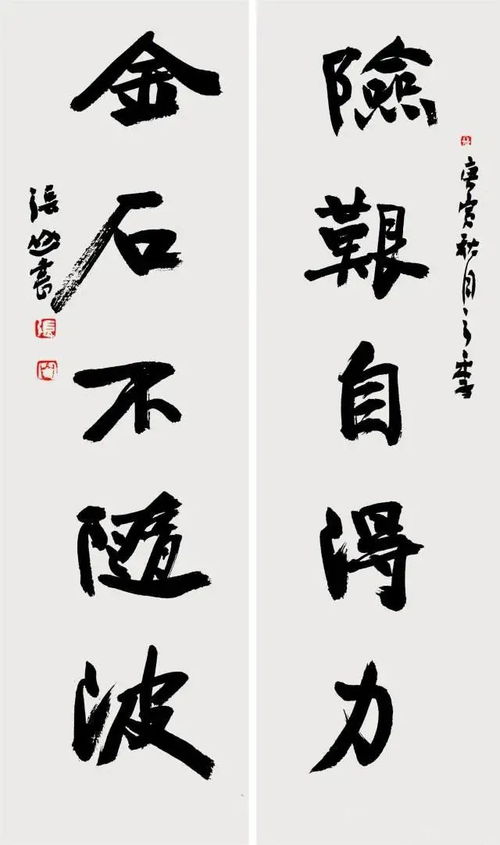 庚寅秋月之季
險艱自得力
金石不隨波
張 書
張